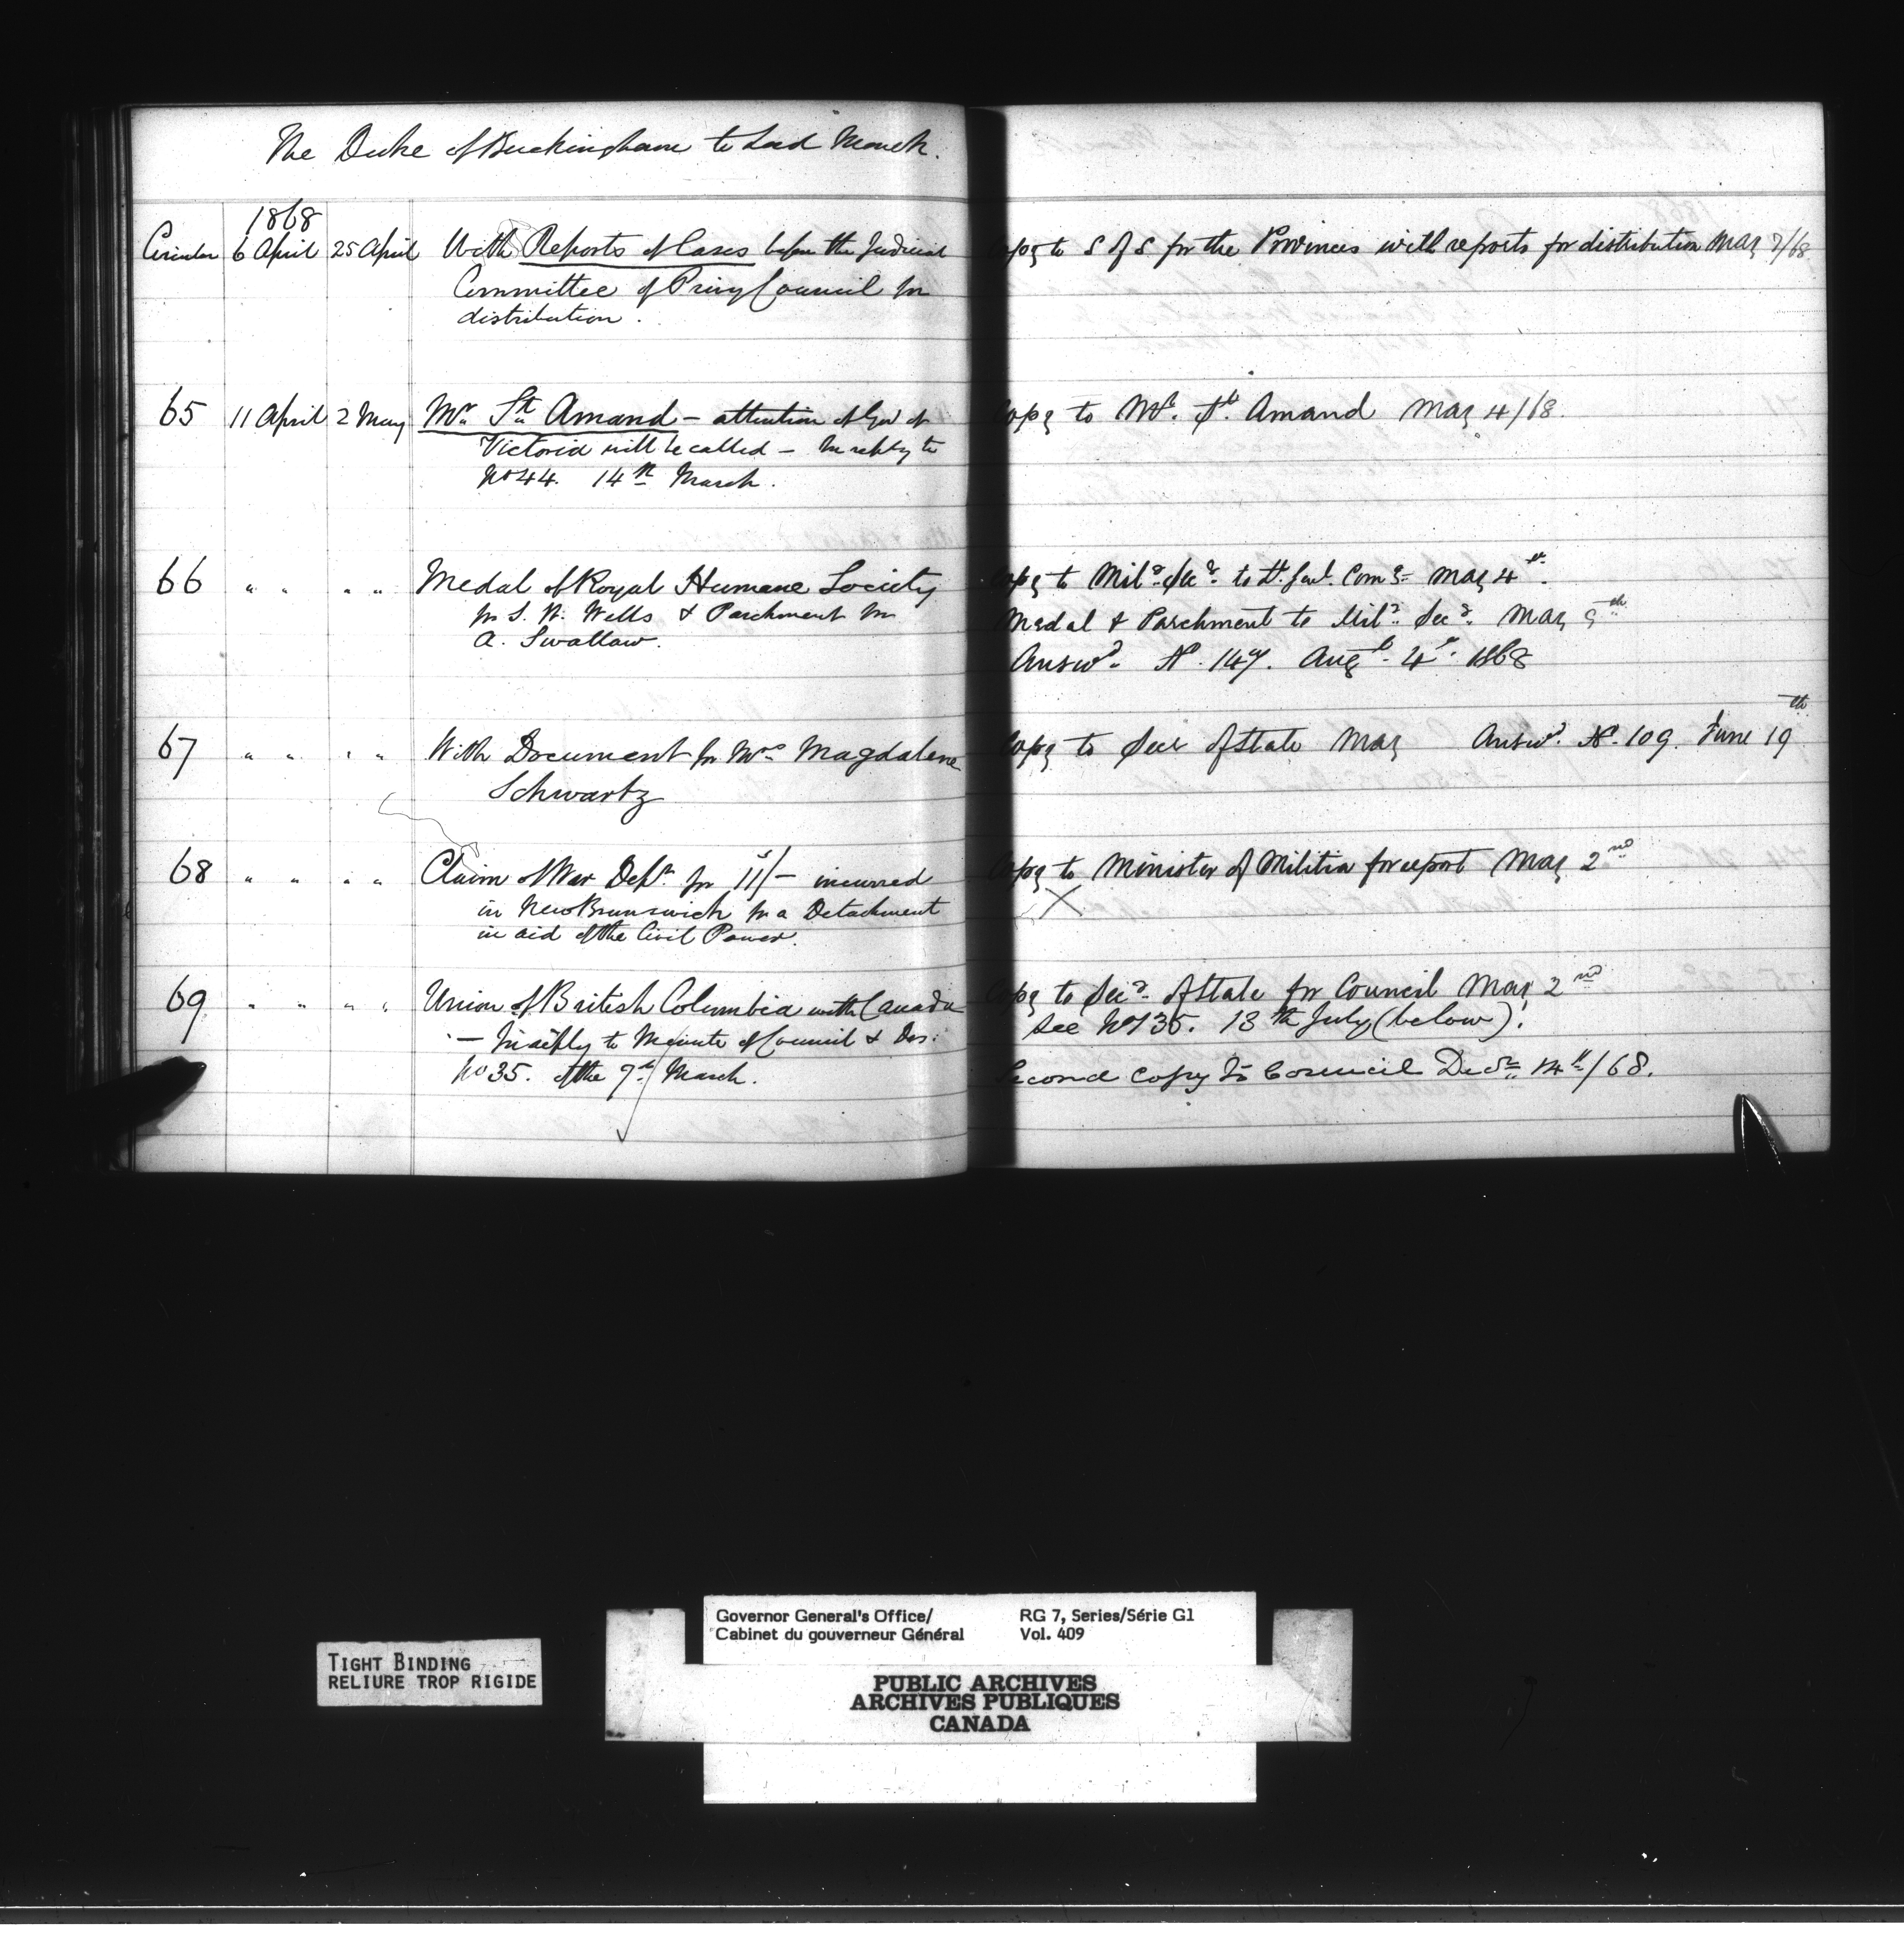 The Duke of Buckingham to Lord Monck.
1868
Circular 6 April 25 April With Reports of Cases before the Judicial
Committee of Privy Council for
distribution.
Copy to S of S for the Provinces with reports for distribution May 7/68
65 11 April 2 May Mr. St. Amand – attention of Govr of
Victoria will be called – In reply to
No 44. 14th March.
Copy to Mr. St. Amand May 4/68.
66 " " " " Medal of Royal Humane Society
for S. W. Wells & Parchment for
A. Swallow.
Copy to Mily. Secy. to Lt. Genl. Comg. May 4th.
Medal & Parchment to Mily. Secy. May 9th
Answd. No. 147. Augt. 4th. 1868
67 " " " " With Document for Mrs Magdalene
Schwartz
Copy to Secy of State May Answd. No. 109. June 19th
68 " " " " Claim of War Dept. for 11s/– incurred
in New Brunswick for a Detachment
in aid of the Civil Power.
Copy to Minister of Militia for report May 2nd
X
69 " " " " Union of British Columbia with Canada
– In reply to Minute of Council & Des:
No 35. of the 7th March.
Copy to Secy. of State for Council May 2nd
See No 135. 13th July (below).
Second copy to Council Decr. 14th/68.
Governor General's Office/
Cabinet du gouverneur Général
RG 7, Series/Série G1
Vol. 409
TIGHT BINDING
RELIURE TROP RIGIDE
PUBLIC ARCHIVES
ARCHIVES PUBLIQUES
CANADA